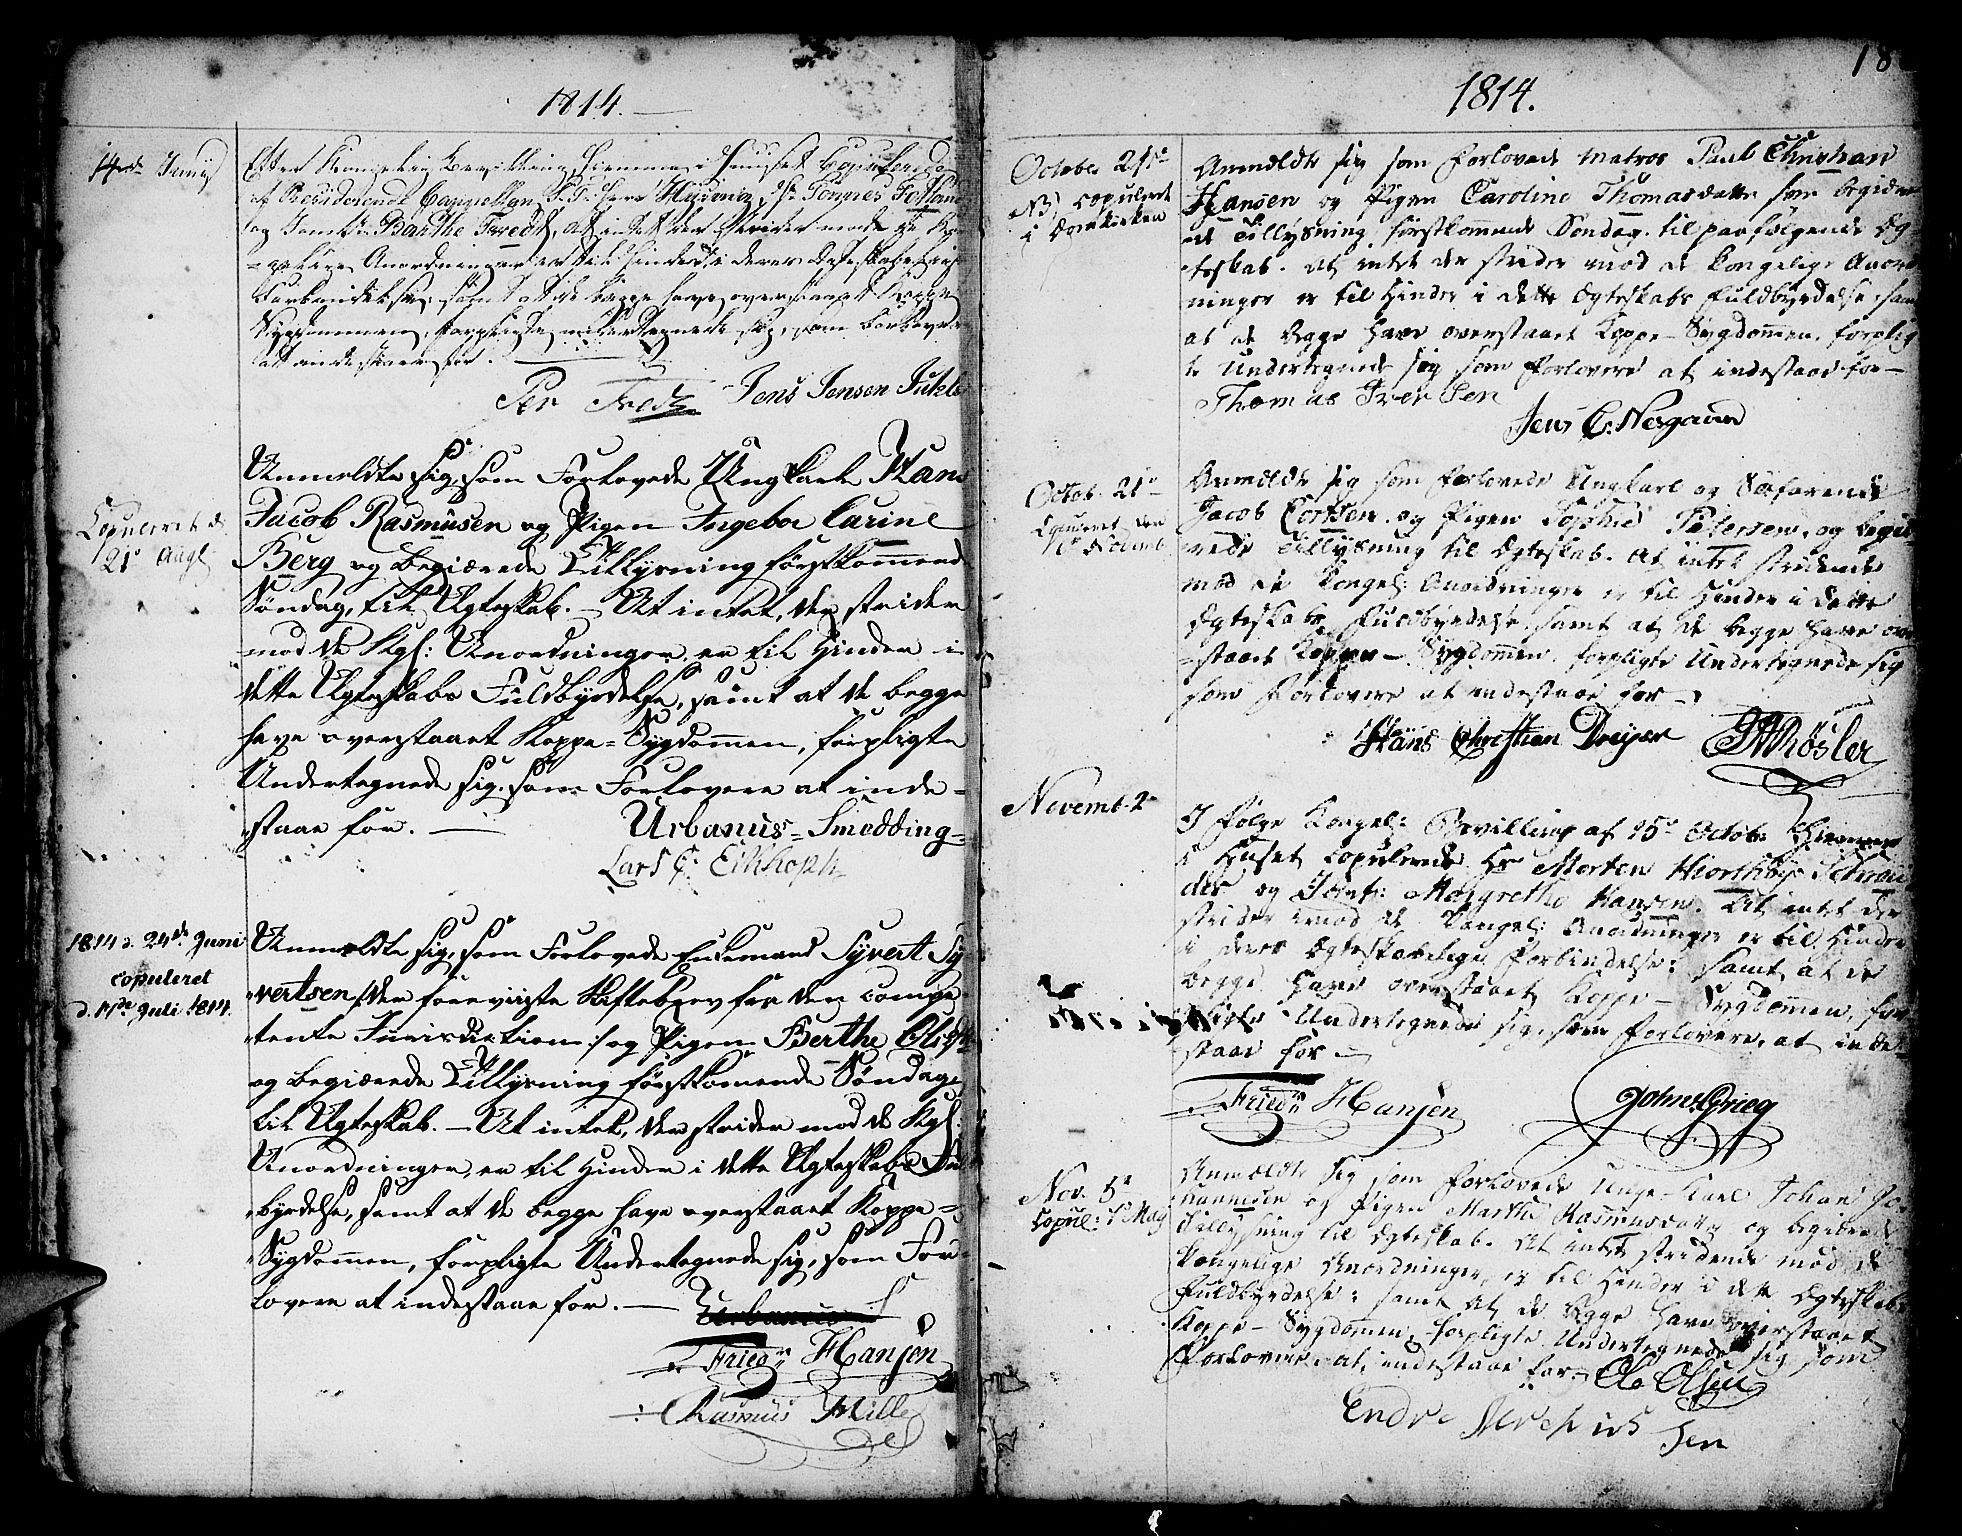 1814.
14de Junij
Efter Kongelig Bevilling hiemme i Huuset Copulerede
af Residerende Cappellan
og Jomfr: Barthe Fredt, at intet der strider mod de Ko-
=gelige Anordninger er til Hinder i deres Ægteskabelige
Forbindelse, samt at de begge have overstaaet Koppe
Sygdommen, forpligte undertegnede sig, som Forlovere
at indestaae for.
Per Fredt Jens Jensen Jukle
Copuleret d.
21de Augt
Anmeldte sig, som Forlovede Ungkarl Hans
Jacob Rasmüsen og Pigen Ingebor Carine
Berg og begiærede Tillysning førstkommende
Søndag, til Ægteskab. – At intet, der strider
mod de Kgl: Anordninger, er til Hinder i
dette Ægteskabs Fuldbyrdelse, samt at de begge
have overstaaet Koppe=Sygdommen, forpligte
Undertegnede sig, som Forlovere at inde-
-staae for. —
Urbanus Smedding
Lars
1814 d. 24de Juni
copuleret
d. 17de Juli 1814.
Anmeldte sig, som Forlovede Enkemand Syvert Sy
vertsen /:der foreviiste Skiftebrev fra den compe
tente Jurisdiction:/ og Pigen Berthe Olsdtr
og begiærede Tillysning førstkomende Søndag,
til Ægteskab. – At intet, der strider mod de Kgl:
Anordninger, er til Hinder i dette Ægteskabs Ful
byrdelse, samt at de begge have overstaaet Koppe=
Sygdommen, forpligte Undertegnede sig, som For-
lovere at indestaae for. —
Urbanus S
Friedn Hansen
Rasmus Hille
18
1814.
October 21de
NB) copuleret
i Domkirken
Anmeldte sig som forlovede Matros Paul Christian
Hansen og Pigen Caroline Thomasdatter som begiære
de Tillysning førstkommende Søndag til paafølgende Æg-
teskab. At intet der strider mod de kongelige Anord
ninger er til Hinder i dette Ægteskabs Fuldbyrdelse, samt
at de begge have overstaaet Koppe-Sygdommen, forplig
te Undertegnede sig som Forlovere at indestaae for –
Thomas Iversen
Jens C. Nesgaard
Octob. 21de
Copuleret den
Novemb.
Anmeldte sig som forlovede Ungkarl og Søfarende
Jacob Cortsen og Pigen Sophie Petersen, og begiæ
rede Tillysning til Ægteskab. At intet stridende
mod de Kongel: Anordninger er til Hinder i dette
Ægteskabs Fuldbyrdelse samt at de begge have over
=staaet Koppe-Sygdommen forpligte Undertegnede sig
som Forlovere at indestaae for –
Hans Christian Dreyer Røsler
Novemb. 2
I følge Kongel: Bevilling af 15de Octob. hiemme
i Huset copulerede Hr Morten Hiorthøy Schrei
der og Jomfr: Margrethe Hansen. At intet der
strider imod de Kongel: Anordninger er til Hinder
i deres Ægteskabelige Forbindelse: samt at de
begge have overstaaet Koppe-Sygdommen, for
pligte Undertegnede sig, som Forlovere, at inde-
staae for –
Friedn Hansen John Grieg
Nov. 5te
Copul: 1 May
Anmeldte sig som forlovede Unge-Karl Johan Jo-
hannesen og Pigen Marthe Rasmusdatter og begiærede
Tillysning til Ægteskab. At intet stridende mod de
Kongelige Anordninger, er til Hinder i dette Ægteskabs
Fuldbyrdelse: samt at de begge have overstaaet
Koppe-Sygdommen, forpligte Undertegnede sig som
Forlovere at indestaae for. – Ole Olsen